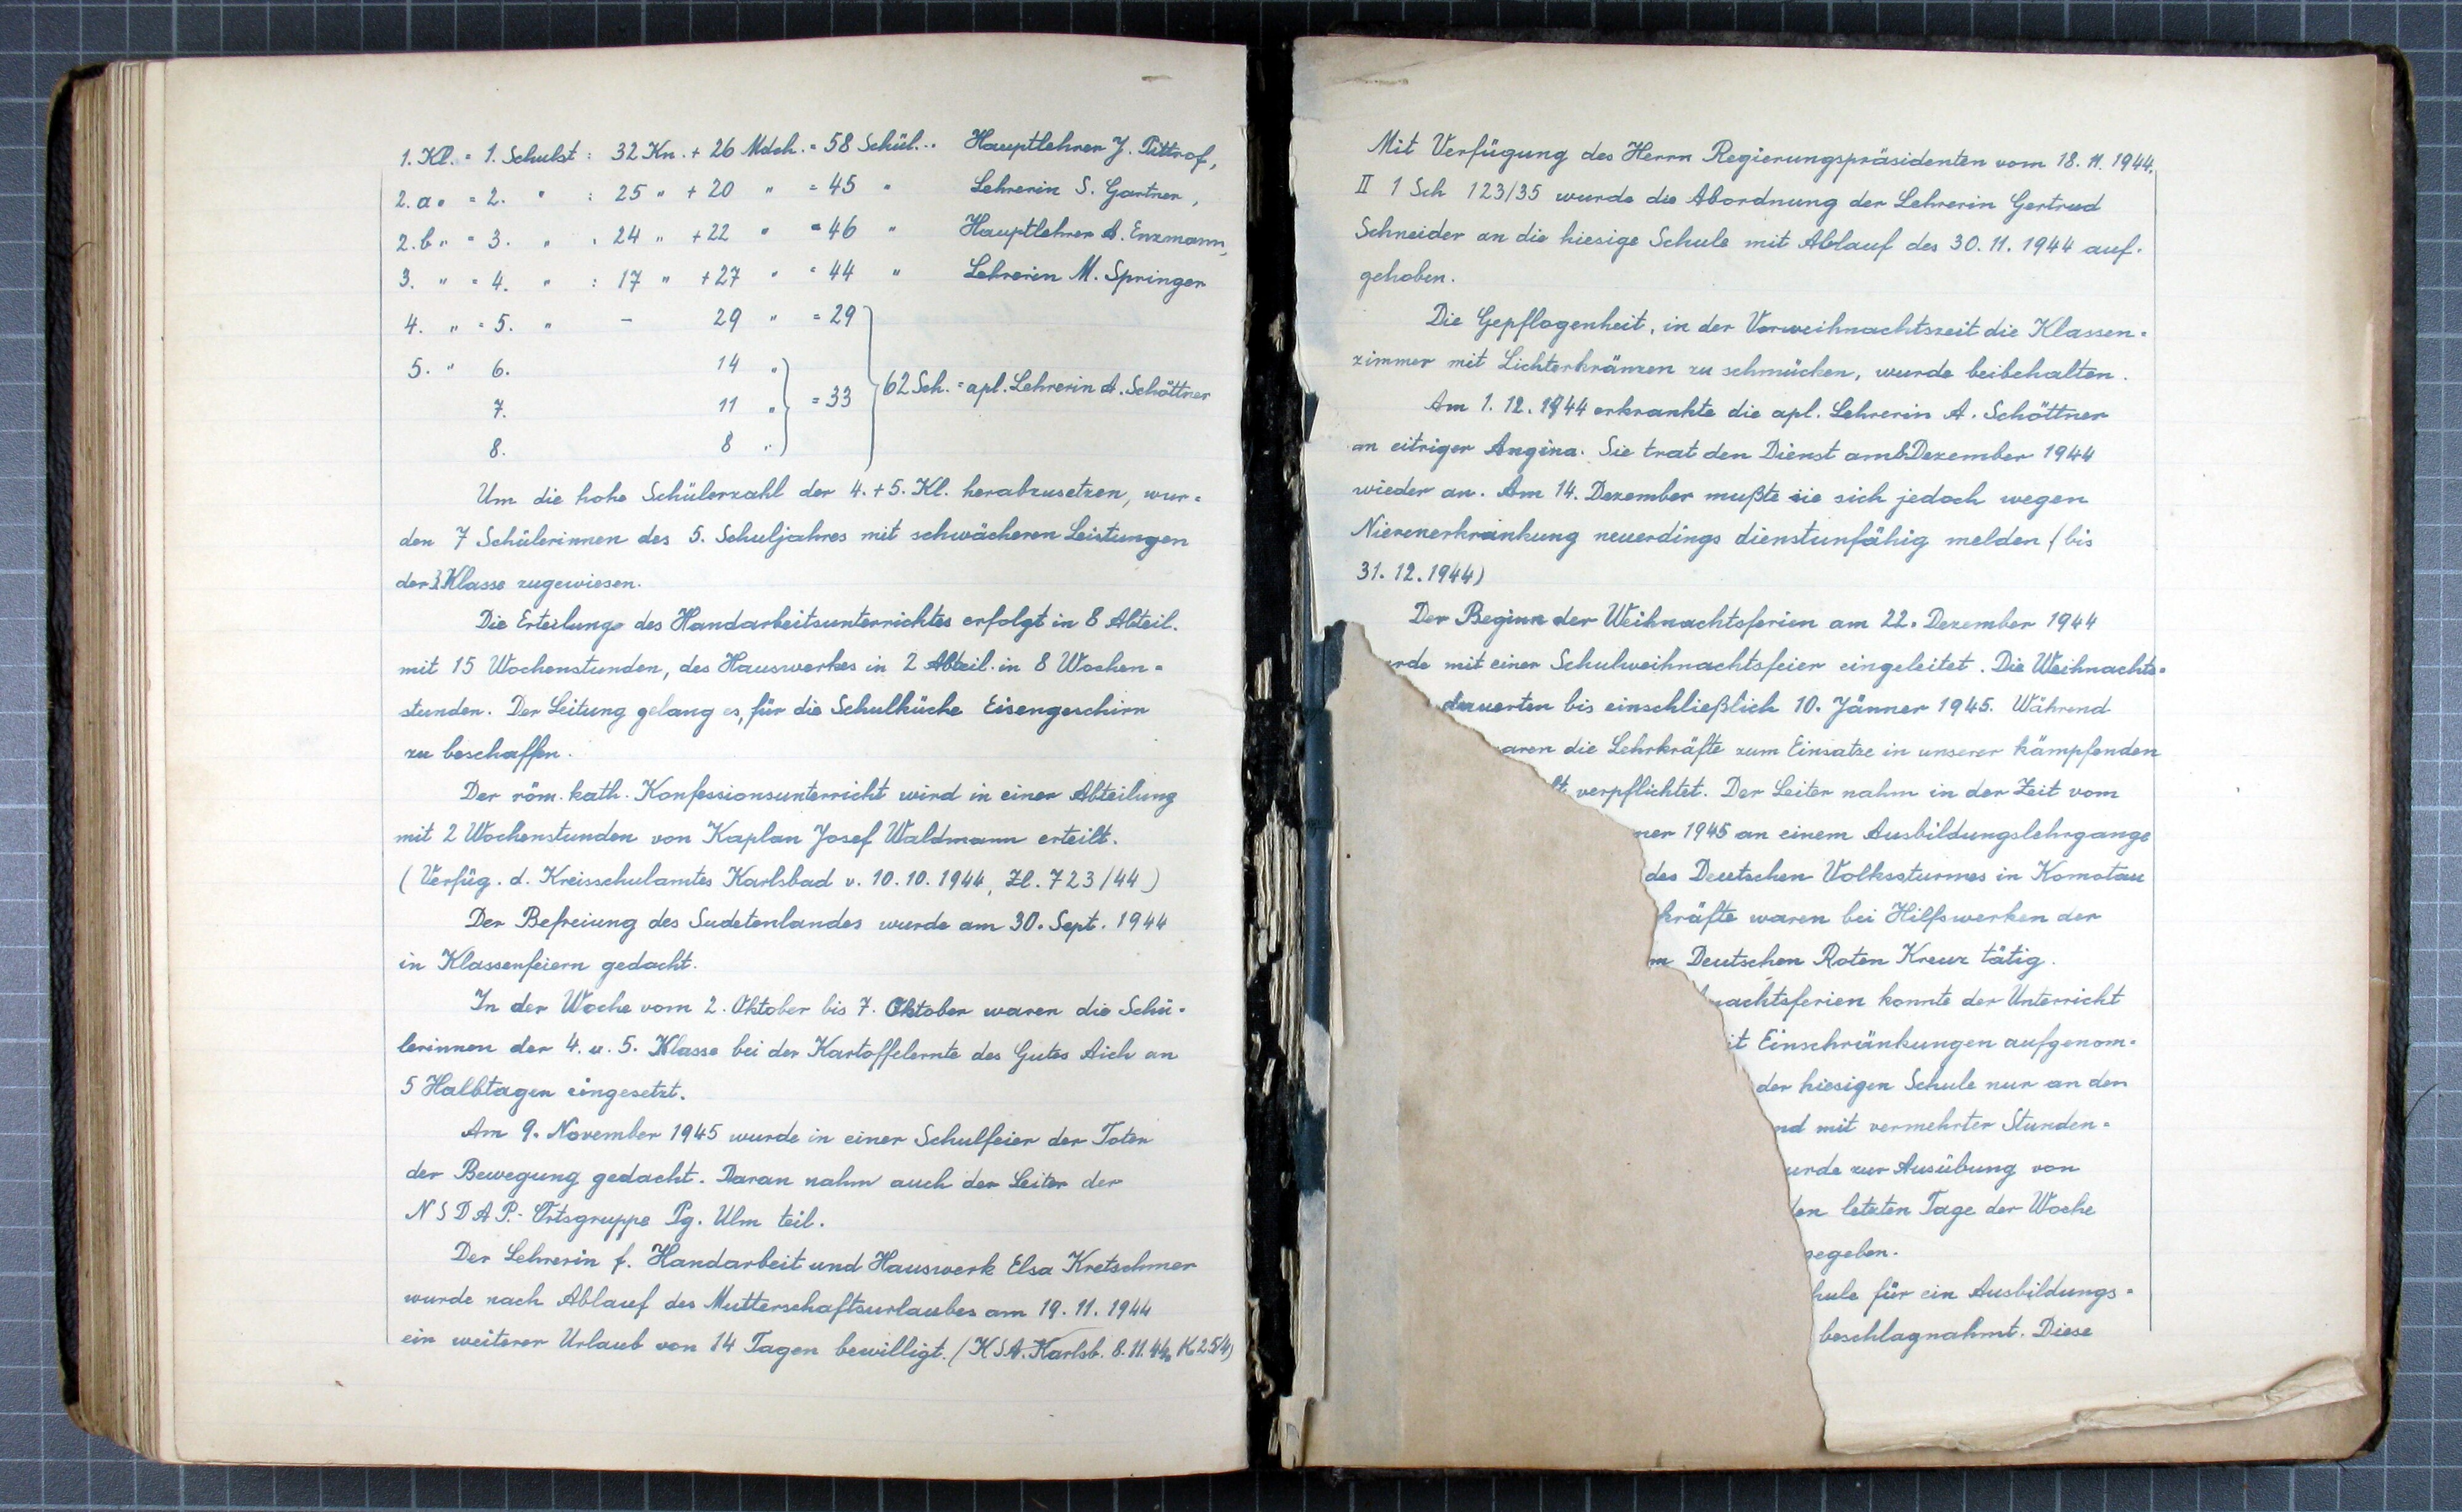 1. Kl. = 1. Schulst : 32 Kn. + 26 Mdch. = 58 Schül.. Hauptlehrer J. Pittrof,
2. a " = 2. " : 25 " + 20 " = 45 " Lehrerin S. Gartner,
2. b " = 3. " : 24 " + 22 " = 46 " Hauptlehrer A. Enzmann,
3. " = 4. " : 17 " + 27 " = 44 " Lehrerin M. Springer
4. " = 5. " - 29 " = 29
5. " 6. 14 "
62 Sch. = apl. Lehrerin A. Schöttner
7. 11 " = 33
8. 8 "
Um die hohe Schülerzahl der 4. + 5. Kl. herabzusetzen, wur=
den 7 Schülerinnen des 5. Schuljahres mit schwächeren Leistungen
der 3. Klasse zugewiesen.
Die Erteilung des Handarbeitsunterrichtes erfolgt in 8 Abteil.
mit 15 Wochenstunden, des Hauswerkes in 2 Abteil. in 8 Wochen=
stunden. Der Leitung gelang es, für die Schulküche Eisengeschirr
zu beschaffen.
Der röm. kath. Konfessionsunterricht wird in einer Abteilung
mit 2 Wochenstunden von Kaplan Josef Waldmann erteilt.
(Verfüg. d. Kreisschulamtes Karlsbad v. 10.10.1944, Zl. 723/44)
Der Befreiung des Sudetenlandes wurde am 30. Sept. 1944
in Klassenfeiern gedacht.
In der Woche vom 2. Oktober bis 7. Oktober waren die Schü=
lerinnen der 4. u. 5. Klasse bei der Kartoffelernte des Gutes Aich an
5 Halbtagen eingesetzt.
Am 9. November 1945 wurde in einer Schulfeier der Toten
der Bewegung gedacht. Daran nahm auch der Leiter der
NSDAP.- Ortsgruppe Pg. Ulm teil.
Der Lehrerin f. Handarbeit und Hauswerk Elsa Kretschmer
wurde nach Ablauf des Mutterschaftsurlaubes am 19.11.1944
ein weiterer Urlaub von 14 Tagen bewilligt. (KSA. Karlsb. 8.11.44, K 25/4)
Mit Verfügung des Herrn Regierungspräsidenten vom 18.11.1944,
II 1 Sch 123/35 wurde die Abordnung der Lehrerin Gertrud
Schneider an die hiesige Schule mit Ablauf des 30.11.1944 auf=
gehoben.
Die Gepflogenheit, in der Vorweihnachtszeit die Klassen=
zimmer mit Lichterkränzen zu schmücken, wurde beibehalten.
Am 1.12.1944 erkrankte die apl. Lehrerin A. Schöttner
an eitriger Angina. Sie trat den Dienst am 8. Dezember 1944
wieder an. Am 14. Dezember mußte sie sich jedoch wegen
Nierenerkrankung neuerdings dienstunfähig melden (bis
31.12.1944)
Der Beginn der Weihnachtsferien am 22. Dezember 1944
urde mit einer Schulweihnachtsfeier eingeleitet. Die Weihnachts=
dauerten bis einschließlich 10. Jänner 1945. Während
aren die Lehrkräfte zum Einsatze in unserer kämpfenden
ft verpflichtet. Der Leiter nahm in der Zeit vom
ner 1945 an einem Ausbildungslehrgange
des Deutschen Volkssturmes in Komotau
kräfte waren bei Hilfswerken der
m Deutschen Roten Kreuz tätig.
nachtsferien konnte der Unterricht
it Einschränkungen aufgenom=
der hiesigen Schule nur an den
nd mit vermehrter Stunden=
urde zur Ausübung von
den letzten Tage der Woche
gegeben.
hule für ein Ausbildungs=
beschlagnahmt. Diese